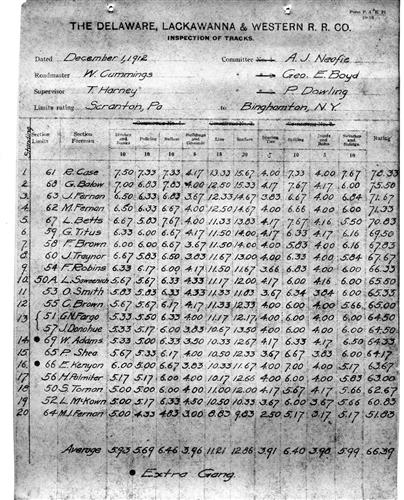 THE DELAWARE, LACKAWANNA & WESTERN R. R. CO.
INSPECTION OF TRACKS.
Dated December 1, 1912 Committee No. 1 A. J. Neafie
Roadmaster W. Cummings Geo. E. Boyd
Supervisor T. Harney P. Dowling
Limits rating Scranton, Pa to Binghamton, N.Y.
Standing
Section Limits Section Foreman Rating
10 10 10 5 10 5
1 61 R. Case 7.50 7.33 7.33 4.17 13.33 15.67 4.00 7.33 4.00 7.67 78.33
2 68 G. Balow 7.00 6.83 7.83 4.00 12.50 15.33 4.17 7.67 4.17 6.00 75.50
3 63 J. Fernan 6.50 6.33 6.83 3.67 12.33 14.67 3.83 6.67 4.00 6.84 71.67
4 62 M. Fernan 6.50 6.33 6.67 4.00 12.50 14.67 4.00 6.66 4.00 6.00 71.33
5 67 L. Betts 6.67 5.83 7.67 4.00 4.17 7.67 4.16 5.50 70.83
6 59 G. Titus 6.33 6.00 6.67 4.17 11.50 14.00 4.17 6.33 4.17 6.16 69.50
7 58 F. Brown 6.00 6.00 6.67 3.67 11.50 14.00 4.00 5.83 4.00 6.16 67.83
8 60 J. Traynor 6.67 5.83 6.50 3.83 11.67 13.00 4.00 6.33 4.00 5.84 67.67
9 54 F. Robins 6.33 6.17 6.00 4.17 11.50 11.67 3.66 6.83 4.00 6.00 66.33
10 50A L. 5.67 5.67 6.33 4.33 11.17 12.00 4.17 6.00 4.16 6.00 65.50
11 53 O. Smith 5.83 5.83 6.33 4.33 11.33 11.83 3.67 6.34 3.84 6.00 65.33
12 55 C. Brown 5.67 5.67 6.67 4.17 11.33 12.33 4.00 6.00 4.00 5.66 65.00
13 51 G.N. Fargo 5.33 5.50 6.33 4.00 11.17 12.17 4.00 6.00 4.00 6.00 64.50
57 J. Donohue 5.33 5.17 6.00 3.83 10.67 13.50 4.00 6.00 4.00 6.00 64.50
14 • 69 W. Adams 5.33 5.00 6.33 3.50 10.33 12.67 4.17 6.33 4.17 6.50 64.33
15 65 P. Shea 5.67 5.33 6.17 4.00 10.50 12.33 3.67 6.67 3.83 6.00 64.17
16 • 66 E. Kenyon 6.00 5.00 6.67 3.83 10.33 11.67 4.00 7.00 4.00 5.17 63.67
17 56 H. Palmiter 5.17 5.17 6.00 4.00 10.17 12.66 4.00 6.00 4.00 5.83 63.00
18 50 S. Torman 5.00 5.00 6.00 4.00 11.00 12.00 4.17 5.67 4.17 5.66 62.67
19 52 L. McKown 5.00 5.17 6.33 4.50 10.50 10.33 3.67 6.00 3.67 5.66 60.83
20 64 M.J. Fernan 5.00 4.33 4.83 3.00 8.83 9.83 2.50 5.17 3.17 5.17 51.83
Average 5.93 5.69 6.46 3.96 11.21 12.86 3.91 6.40 3.98 5.99 66.39
• Extra Gang.